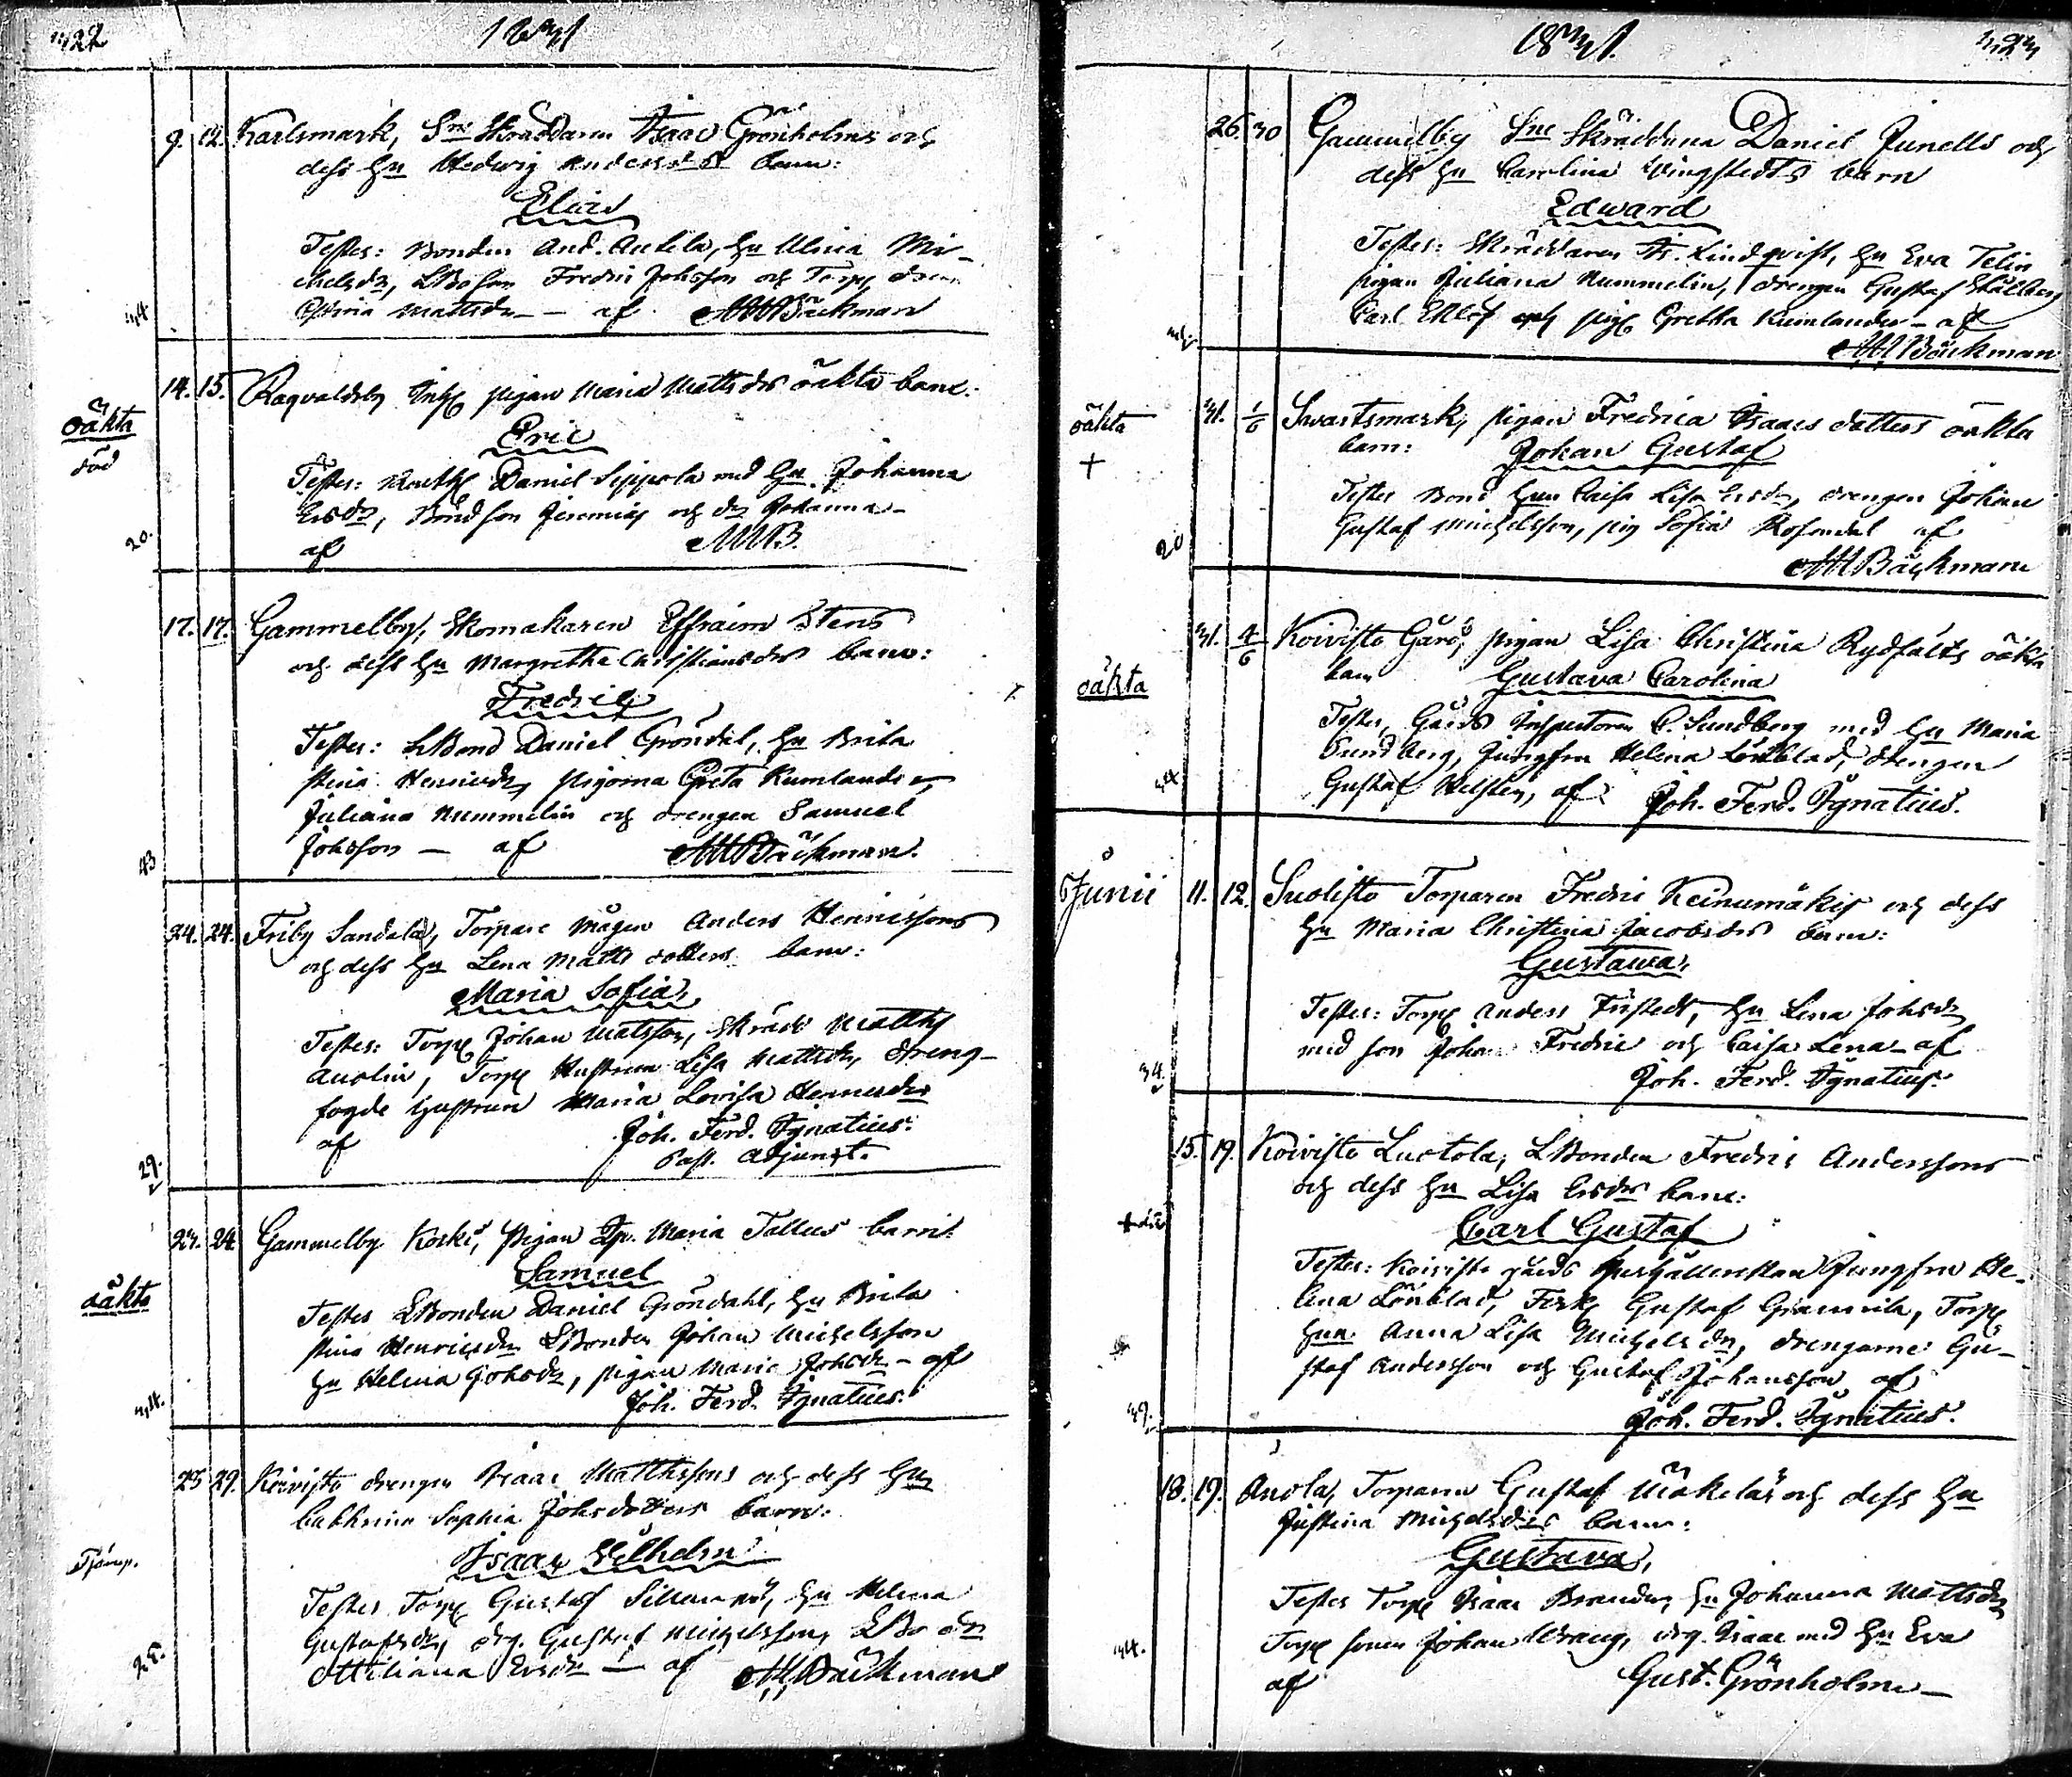 322
1831
9. 12. Karlsmark, Sne Skräddaren Isaac Grönholms och
dess Hu Hedwig Andersdrs barn:
Elias
Testes: Bonden And. Anttila, Hu Ulrica Mi-
chelsdr, LBoson Fredric Johsson och Torp
Stina Mattsdr – af MBäckman
34
14. 15. Ragvaldsby Inh pigan Maria Mattsdrs oäkta barn:
oäkta
död
Eric
Testes: Daniel Seppola med Hu Johanna
Ersdr, Bondson Jeremias och dr Johanna –
20.
af MB.
17. 17. Gammelby, Skomakaren Effraim Stens
och dess Hu Margretha Christiansdrs barn:
Fredric
Testes: LBond Daniel Gröndal, Hu Brita
Stina Henricsdr, pigorna Greta Rumlander,
Juliana Nummelin och drengen Samuel
Johsson – af MBäckman.
43
24. 24. Friby Sandala, Torpare mågen Anders Henricssons
och dess Hu Lena Matts dotters barn:
Maria Sofia,
Testes: Torp Johan Matsson, Skrädd Matths
Torp Hustrun Lisa Mattsdr, Dreng-
fogde hustrun Maria Lovisa Henricsdr
af Joh. Ferd. Ignatius.
Past. Adjunct.
29.
23. 24. Gammelby Koski, Pigan Maria Tallus barn:
Samuel
oäkta
Testes LBonden Daniel Gröndahl, Hu Brita
Stina Henricsdr LBonden Johan Michelsson
Hu Helena Johsdr, pigan Maria Johsdr – af
Joh. Ferd. Ignatius.
34.
23 29. Koivisto drengen Isaac Matthssons och dess Hu
Cathrina Sophia Johsdotters barn:
Isaac Wilhelm
Testes Torp Gustaf Hu Helena
Gustafsdr, drg. Gustaf Michelsson, LBo dr
Ersdr – af MBäckman
1831.
323
26. 30 Gammelby Sne Skräddaren Daniel Junells och
dess Hu Carolina Wingstedts barn
Edward
Testes: Skräddaren Is. Lindqvist, Hu Eva Telin
pigan Juliana Nummelin, drengen Gustaf Stålberg
Carl Eklöf och pig Gretha Rumlander – af
MBäckman
31. 1/6 Swartsmark, pigan Fredrica Isaacs dotters oäkta
oäkta
+
barn: Johan Gustaf
Testes Bond Hun Caisa Lisa Ersdr, drengen Johan
Gustaf Michelsson, pig Sofia Rosendal af
20
MBäckman
31. 4/6 Koivisto Gård, pigan Lisa Christina Rydfälts oäkta
oäkta
barn Gustava Carolina
Testes, Gårds Inspectoren C. Sundberg med Hu Maria
Sundberg, Jungfru Helena Lönblad, drengen
Gustaf Helsten, af Joh. Ferd. Ignatius.
Junii 11. 12. Suolisto Torparen Fredric Keinumäkis och dess
Hu Maria Christina Jacobsdrs barn:
Gustawa,
Testes: Torp Anders Hu Lena Johsdr
med son Johan Fredric och Caisa Lena – af
34.
Joh. Ferd. Ignatius.
15. 19. Koivisto Luotola, LBonden Fredric Anderssons
och dess Hu Lisa Ersdrs barn:
Carl Gustaf
Testes: Koivisto gårds Hushållerskan Jungfru He-
lena Lönblad, Gustaf Torp
Hun Anna Lisa Michelsdr, drengarne Gu-
staf Andersson och Gustaf Johansson af
39.
Joh. Ferd. Ignatius.
18. 19. Anola, Torparen Gustaf Mäkeläs och dess Hu
Justina Michelsdrs barn:
Gustava,
Testes Torp Isaac Brander, Hu Johanna Mattsdr
Torp sonen Johan drg. Isaac med Hu Eva
34.
af Gust. Grönholm –